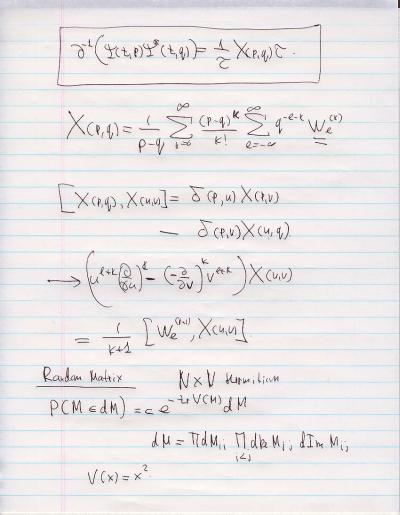 ∂⁻¹(Ψ(t,p)Ψ*(t,q)) = 1/τ X(p,q)τ.
X(p,q) = 1/(p-q) ∑ (p-q)^k/k! ∑_{ℓ=-∞}^{∞} q^{-ℓ-k} W_ℓ^{(k)}
[X(p,q), X(u,v)] = δ(p,u)X(p,v)
− δ(p,v)X(u,q)
→ (u^{ℓ+k}(∂/∂u)^k − (−∂/∂v)^k v^{ℓ+k}) X(u,v)
= 1/(k+1) [W_ℓ^{(k+1)}, X(u,v)]
Random Matrix N×N Hermitian
P(M ∈ dM) = c e^{-tr V(M)} dM
dM = ∏ dM_{ii} ∏_{i<j} dRe M_{ij} dIm M_{ij}
V(x) = x²